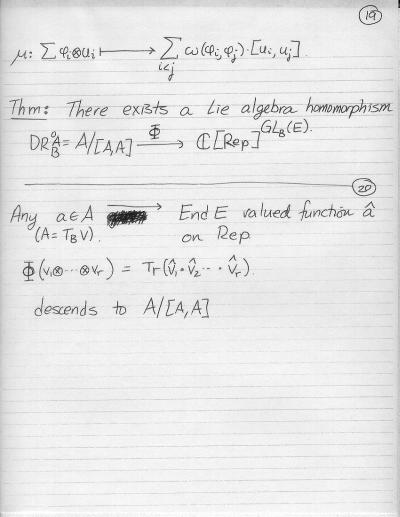 19
μ: ∑ φᵢ⊗uᵢ ⟼ ∑_{i<j} ω(φᵢ,φⱼ)·[uᵢ, uⱼ].
Thm: There exists a Lie algebra homomorphism
DR⁰_B A = A/[A,A] —Φ→ ℂ[Rep]^{GL_B(E)}.
20
Any a∈A ⟶ End E valued function â
(A = T_B V). on Rep
Φ(v₁⊗···⊗vᵣ) = Tr(v̂₁·v̂₂···v̂ᵣ).
descends to A/[A,A]